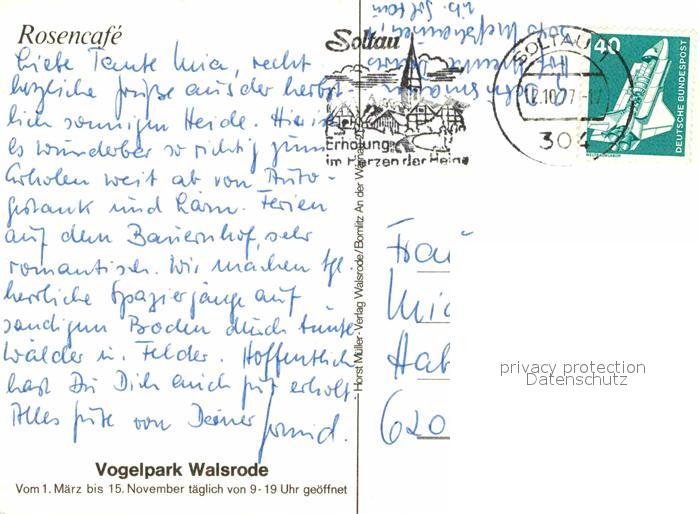 Rosencafé
Liebe Tante Mia, recht
herzliche Grüße aus der herbst-
lich sonnigen Heide. Hier ist
es wunderbar so richtig zum
Erholen weit ab von Auto-
gestank und Lärm. Ferien
auf dem Bauernhof, sehr
romantisch. Wir machen tgl.
herrliche Spaziergänge auf
sandigem Boden durch bunte
Wälder u. Felder. Hoffentlich
hast Du Dich auch gut erholt.
Alles Gute von Deiner
Vogelpark Walsrode
Vom 1. März bis 15. November täglich von 9-19 Uhr geöffnet
Horst Müller-Verlag Walsrode/Bomlitz An der Warnau
Soltau
Erholung
im Herzen der Heide
SOLTAU 1
12.10.77-17
304
40
DEUTSCHE BUNDESPOST
Frau
Mia
Hab
620
privacy protection
Datenschutz